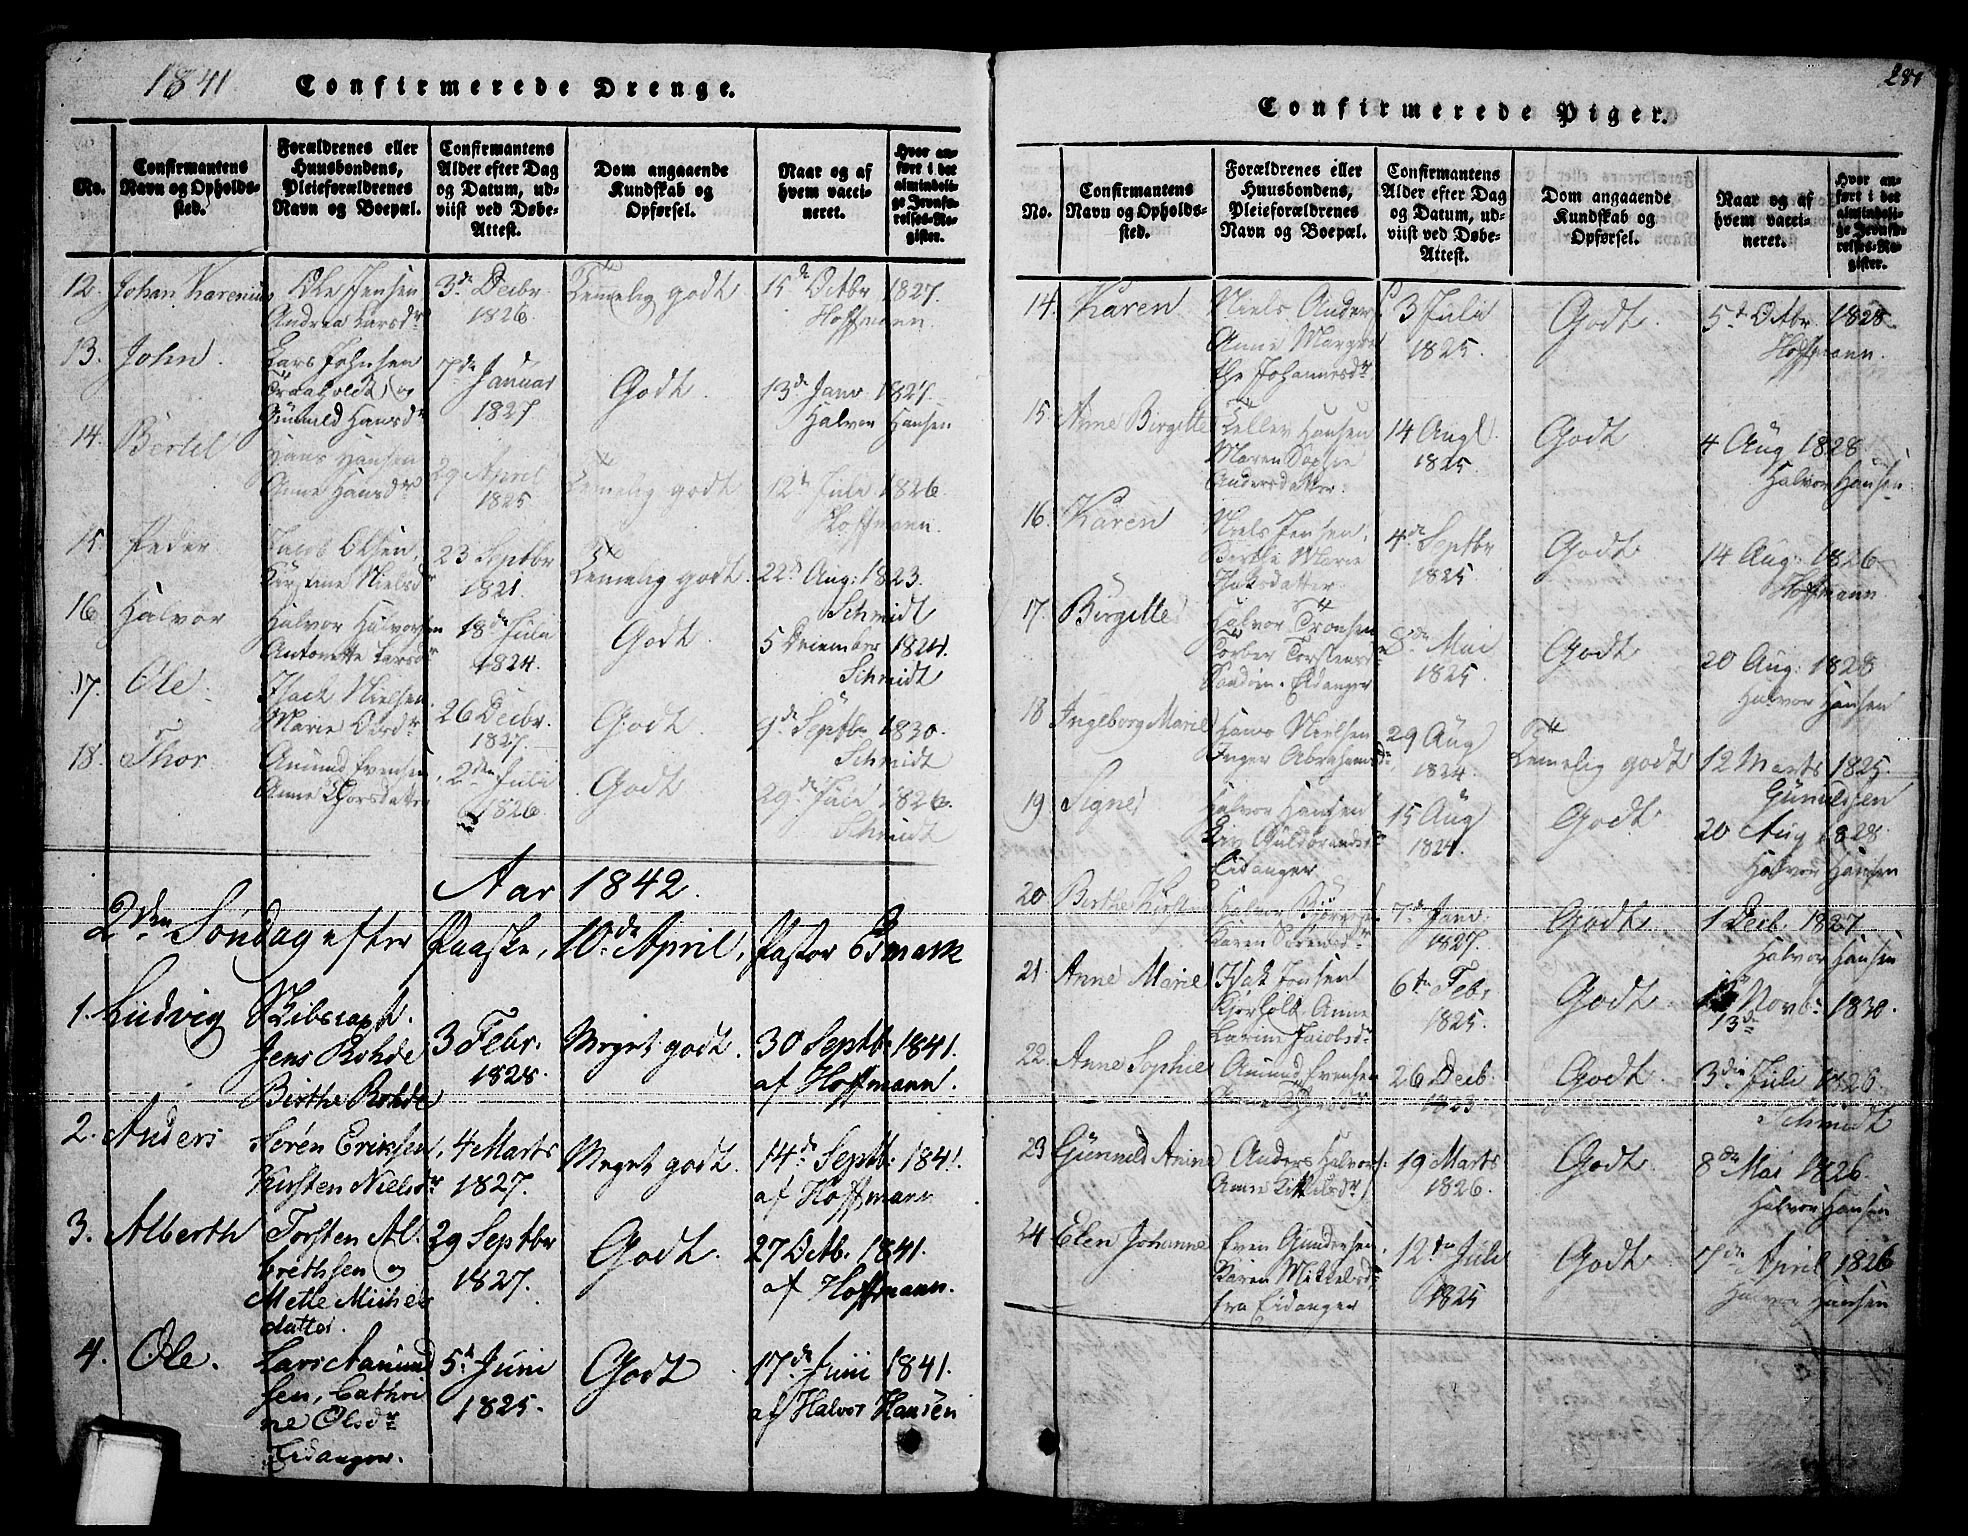 1841
Confirmerede Drenge.
No.
Confirmantens
Navn og Opholds-
sted.
Forældrenes eller
Huusbondens,
Pleieforældrenes
Navn og Boepæl.
Confirmantens
Alder efter Dag
og Datum, ud-
viist ved Døbe-
Attest.
Dom angaaende
Kundskab og
Opførsel.
Naar og af
hvem vacci-
neret.
Hvor an-
ført i det
almindeli-
ge Jevnfø-
relses-Re-
gister.
12. Johan Karenius
Ole Jensen
Andrea Larsdr
3de Decbr.
1826.
Temmelig godt
15de Octbr 1827.
Hoffmann.
13. John.
Lars Johnsen
Traaholdt og
Gunnild Hansdr
7de Januar
1827.
Godt
13de Janv 1827.
Halvor Hansen
14. Bertel
Hans Hansen
Anne Hansdr
29 April
1825
Temelig godt
12te Juli 1826.
Hoffmann.
15. Peder
Jacob Olsen,
Kirstine Nielsdr
23 Septbr
1821.
Temelig godt.
22de Aug: 1823.
Schmidt
16. Halvor
Halvor Halvorsen
Antonette Larsdr
18de Julii
1824.
Godt
5 December 1824.
Schmidt
17. Ole.
Isach Nielsen
Marie Olsdr
26 Decbr.
1827.
Godt
9de Septbr 1830.
Schmidt
18. Thor
Amund Evensen,
Anne Thorsdatter
2den Juli
1826.
Godt
29de Juli 1826.
Schmidt
Aar 1842.
2den Søndag efter Paaske, 10de April, Pastor Esmark
1. Ludvig
Skibscapt.
Jens Rohde
Birthe Rohde
3 Febr.
1828.
Meget godt.
30 Septb. 1841.
af Hoffmann.
2. Anders
Søren Eriksen,
Kirsten Nielsdr
4 Marts
1827.
Meget godt.
14de Septb. 1841.
af Hoffmann
3. Alberth
Torsten Al-
brethsen og
Mette Michels
datter.
29 Septbr
1827.
Godt.
27 Octb. 1841.
af Hoffmann.
4. Ole.
Lars Aamund
sen, Cathri
ne Olsdr
Eidanger.
5te Juni
1825.
Godt
17de Juni 1841.
af Halvor Hansen
281
Confirmerede Piger.
No.
Confirmantens
Navn og Opholds-
sted.
Forældrenes eller
Huusbondens,
Pleieforældrenes
Navn og Boepæl.
Confirmantens
Alder efter Dag
og Datum, ud-
viist ved Døbe-
Attest.
Dom angaaende
Kundskab og
Opførsel.
Naar og af
hvem vacci-
neret.
Hvor an-
ført i det
almindeli-
ge Jevnfø-
relses-Re-
gister.
14. Karen
Niels Anders
Anne Margre
the Johannesdr
3 Julii
1825.
Godt.
5te Octbr. 1828.
Hoffmann.
15. Anne Birgitte
Tellev Hansen
Maren Sophie
Andersdatter.
14 Augt.
1825.
Godt
4 Aug 1828
Halvor Hansen
16. Karen
Niels Jensen,
Berthe Marie
Isaksdatter
4de Septbr
1825
Godt
14 Aug: 1826
Hoffmann
17. Birgitte
Halvor Tronsen
Torber Torstensd
Eidanger
8de Mai
1825.
Godt
20 Aug: 1828
Halvor Hansen
18 Ingeborg Marie
Hans Nielsen
Inger Abrahamsd
29 Aug
1824.
Temelig godt
12 Marts 1825.
Gunuldsen
19 Signe
Halvor Hansen
Guldbrandsd
Eidanger
15 Aug
1824.
Godt
20 Aug 1828.
Halvor Hansen
20 Berthe Kirstine
Halvor Bjørnsen
Karen Sørensdr
7de Janv.
1827.
Godt.
1 Decb. 1827
Halvor Hansen
21. Anne Marie
Isak Jensen
Kjørholt, Anne
Larine Jacobsdr
6te Febr
1825.
Godt
13de Novbr 1830.
22. Anne Sophie
Amund Evensen
Anne Thorsdr
26 Decb.
1823
Godt.
3die Juli 1826.
Schmidt
23 Gunnild Anine
Anders Halvors
Anne Kittilsdr
19 Marts
1826.
Godt.
8de Mai 1826.
Halvor Hansen
24 Elen Johanne
Even Gundersen,
Karen Mikkelsdr
fra Eidanger
12te Juli
1825
Godt
17de April 1826
Halvor Hansen